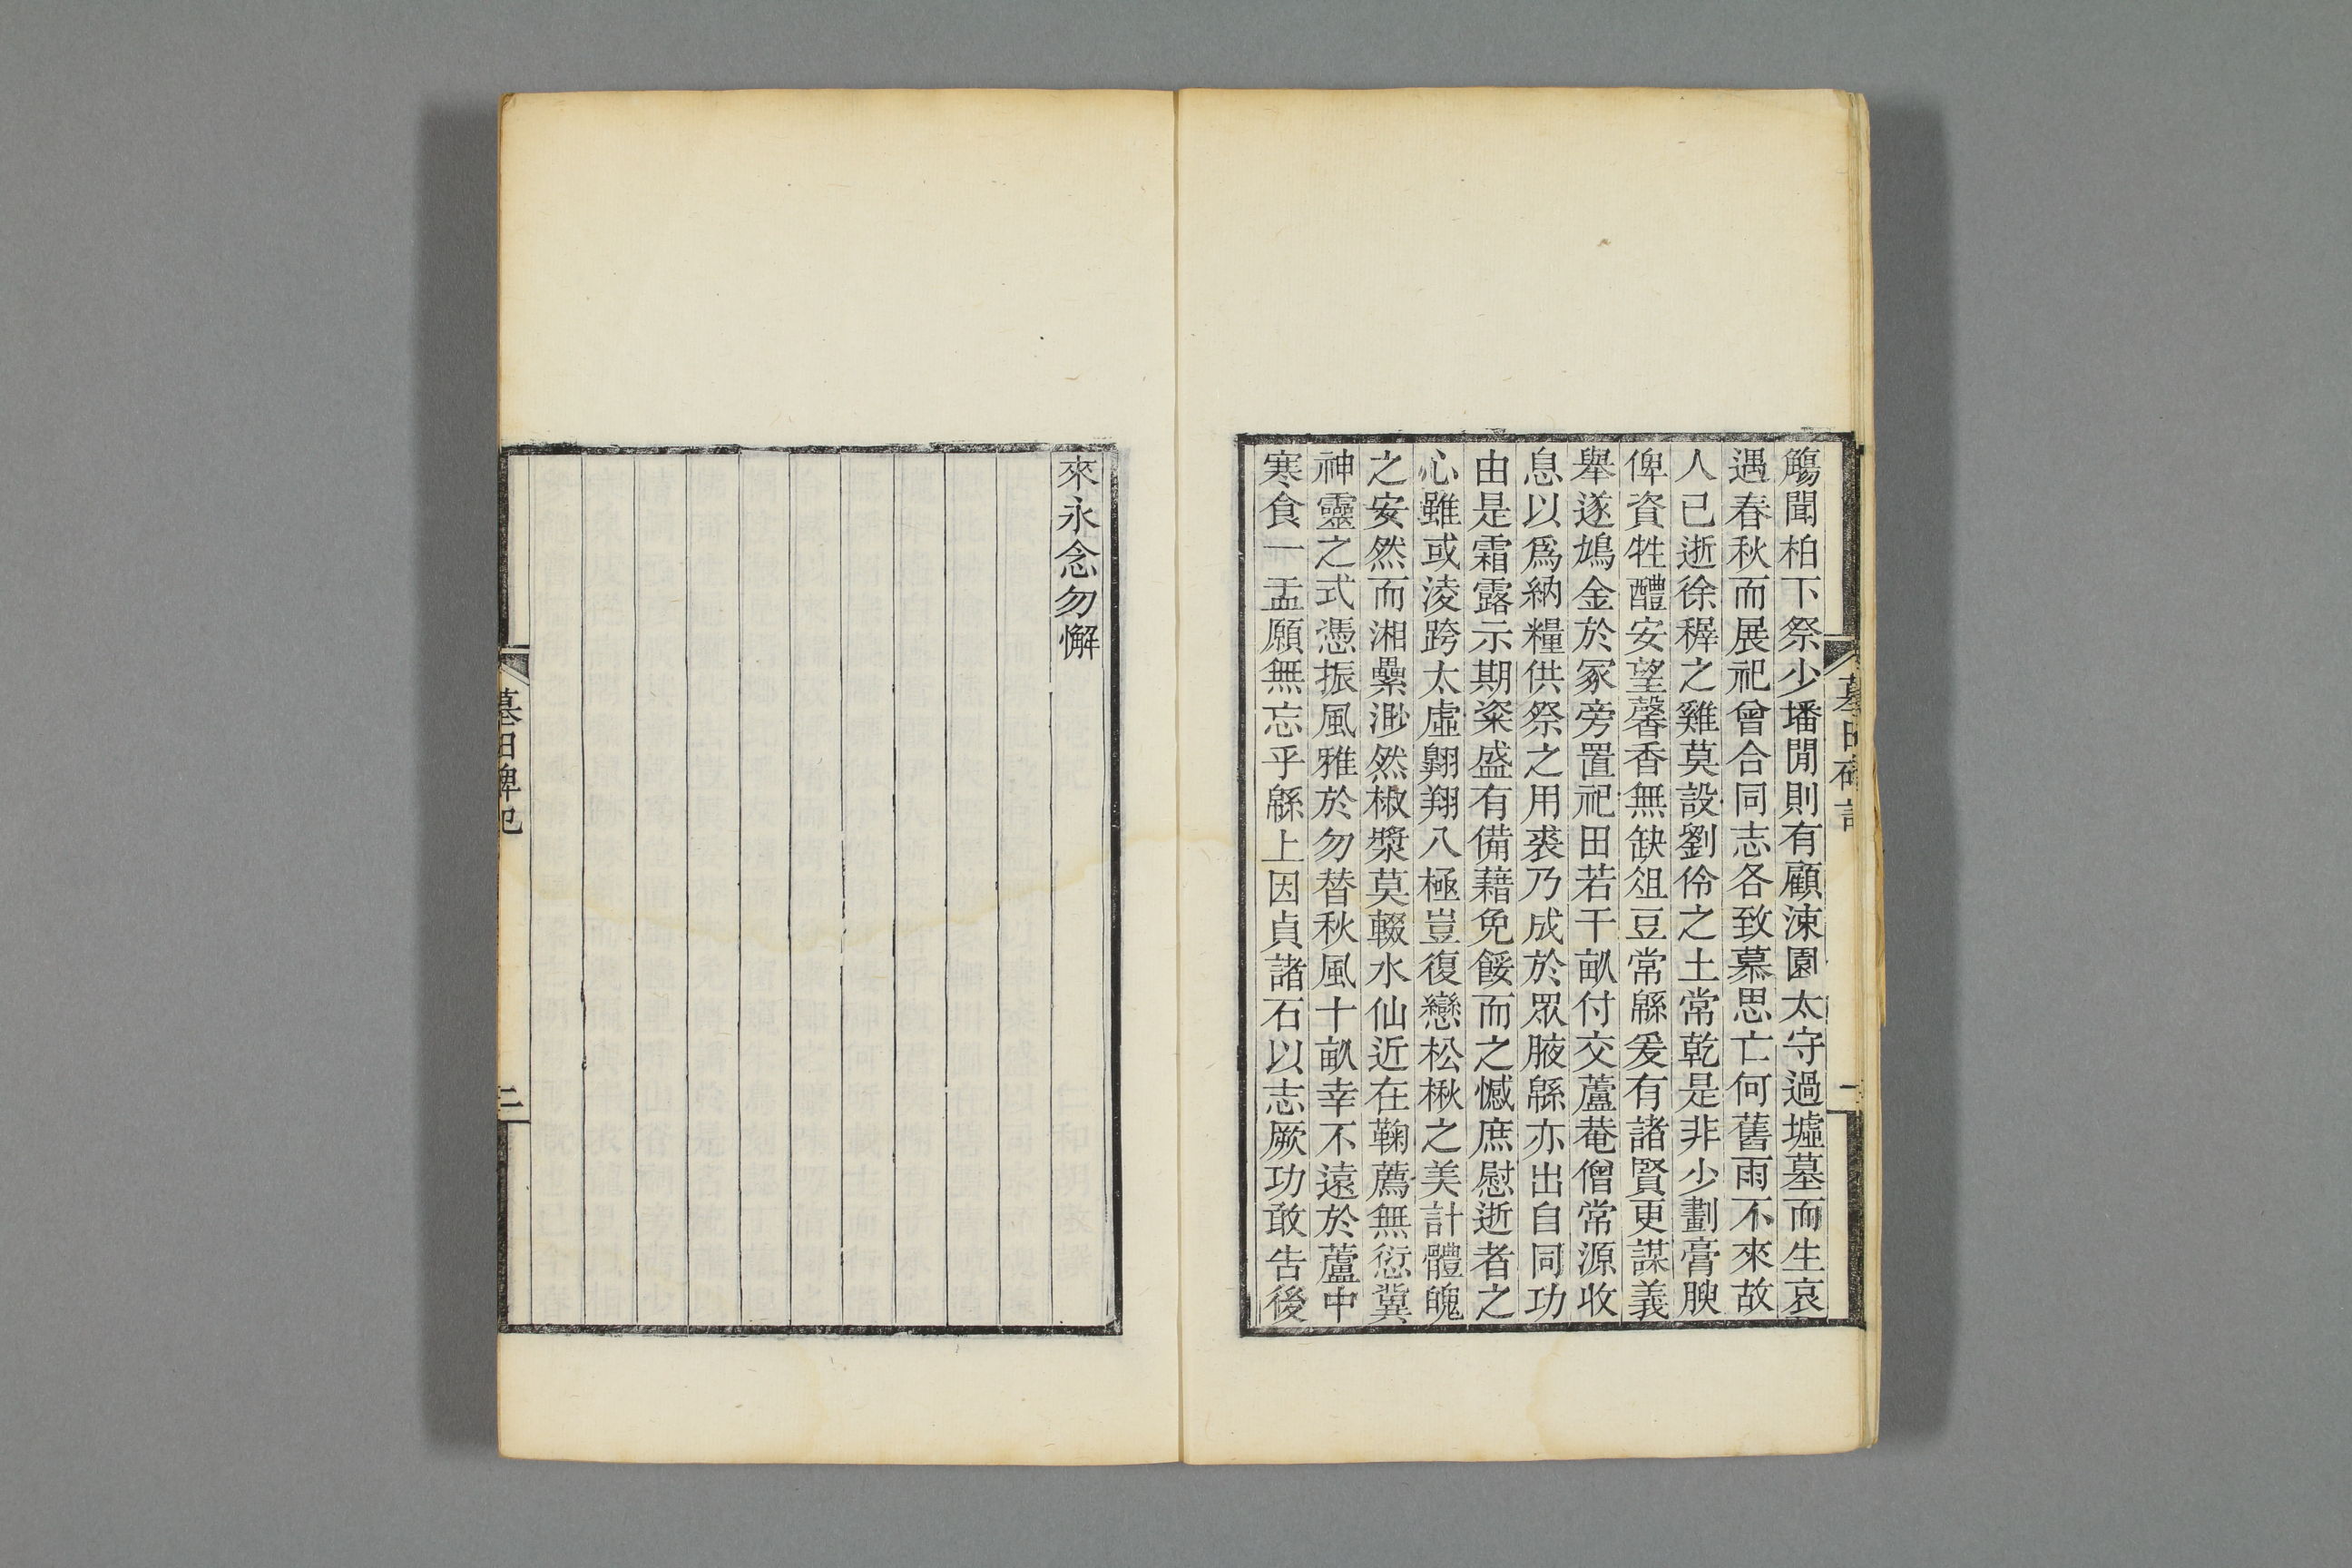 觴聞柏下祭少墦閒則有顧涑園太守過墟墓而生哀
遇春秋而展祀曾合同志各致慕思亡何舊雨不來故
人已逝徐穉之雞莫設劉伶之土常乾是非少劃膏腴
俾資牲醴安望馨香無缺俎豆常緜爰有諸賢更謀義
舉遂鳩金於冢旁置祀田若干畝付交蘆菴僧常源收
息以爲納糧供祭之用裘乃成於眾腋緜亦出自同功
由是霜露示期粢盛有備藉免餒而之憾庶慰逝者之
心雖或淩跨太虛翺翔八極豈復戀松楸之美計體魄
之安然而湘纍渺然椒漿莫輟水仙近在鞠薦無愆冀
神靈之式憑振風雅於勿替秋風十畝幸不遠於蘆中
寒食一盂願無忘乎緜上因貞諸石以志厥功敢告後
墓田碑記
來永念勿懈
墓田碑記
二